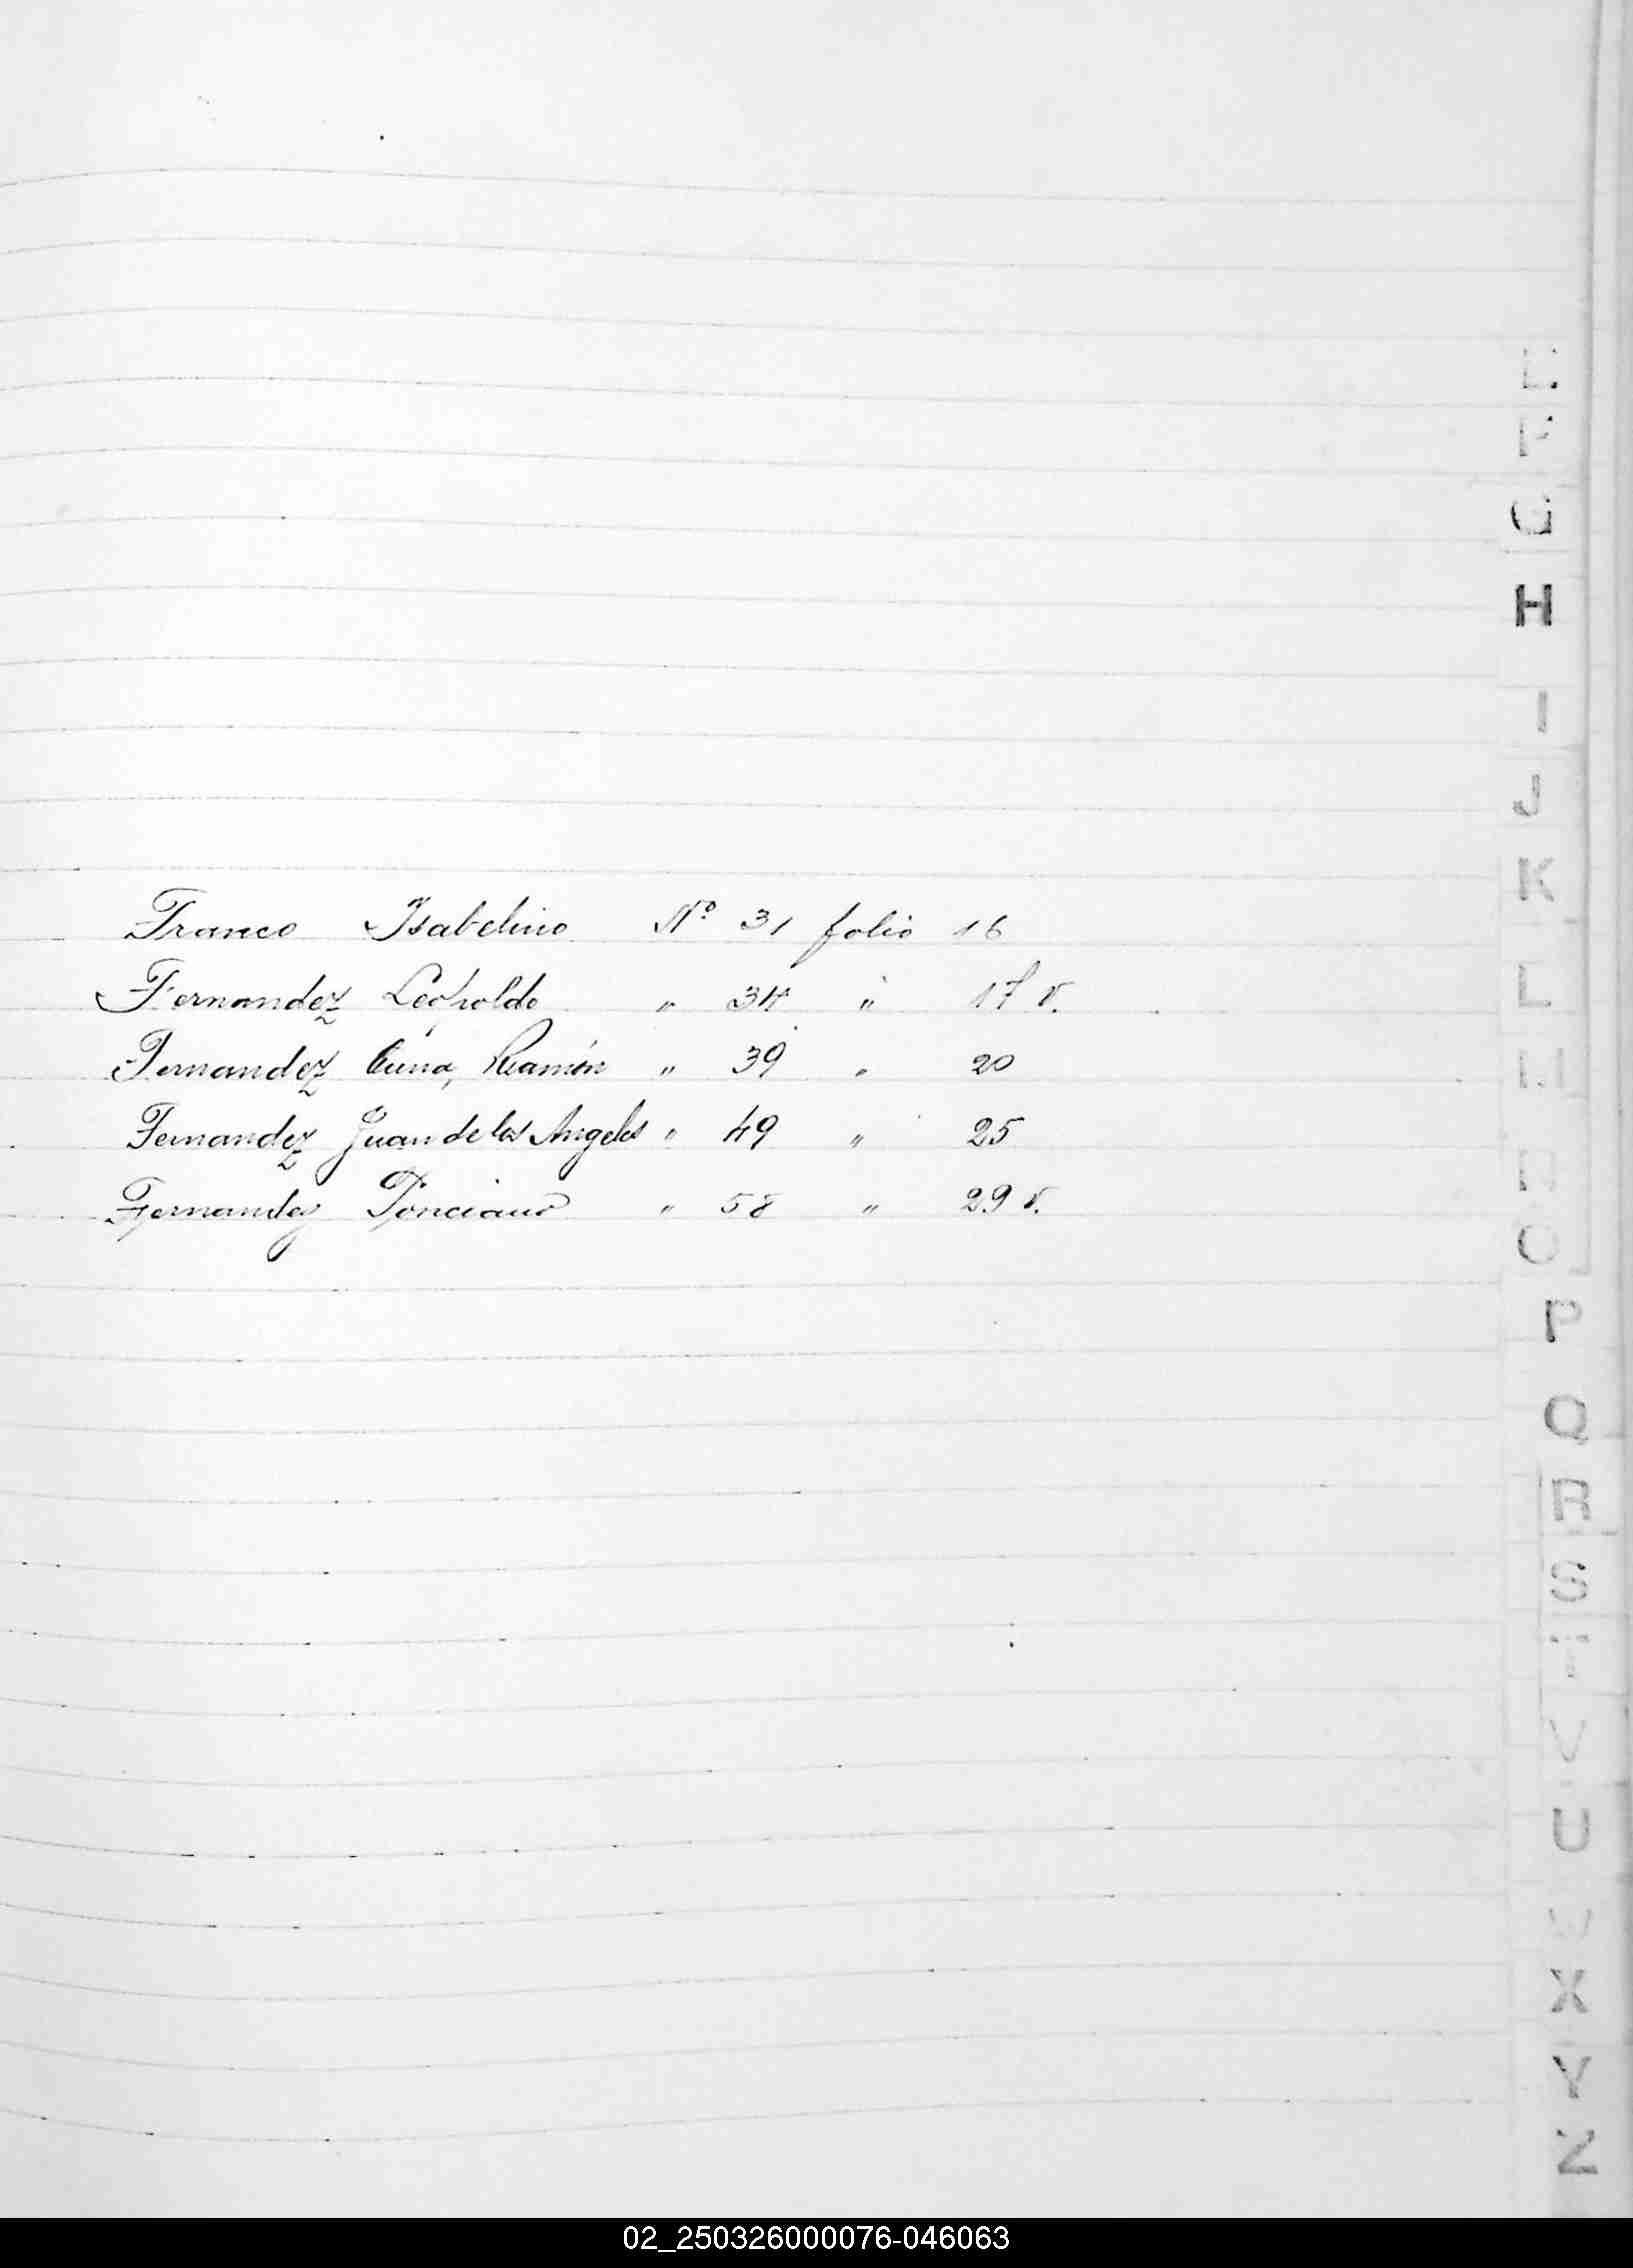 E
F
G
H
I
J
K
Franco Isabelino Nº 31 folio 16
L
Fernandez Leopoldo " 34 " 17 v.
M
Fernandez Ramón " 39 " 20
Fernandez Juan de los Angeles " 49 " 25
N
Fernandez Ponciano " 58 " 29 v.
O
P
Q
R
S
T
V
U
W
X
Y
Z
02_250326000076-046063